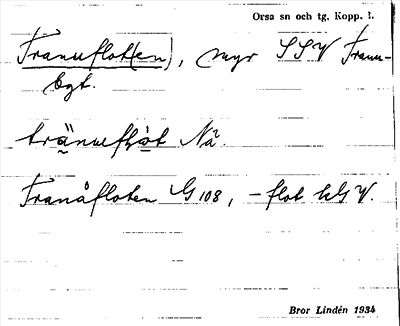 Orsa sn och tg. Kopp. l.
Tranuflot(en), myr SSV Tranu-
bgt.
tränufḷòt Nå.
Tranåfloten G 108, -flot kG V.
Bror Lindén 1934